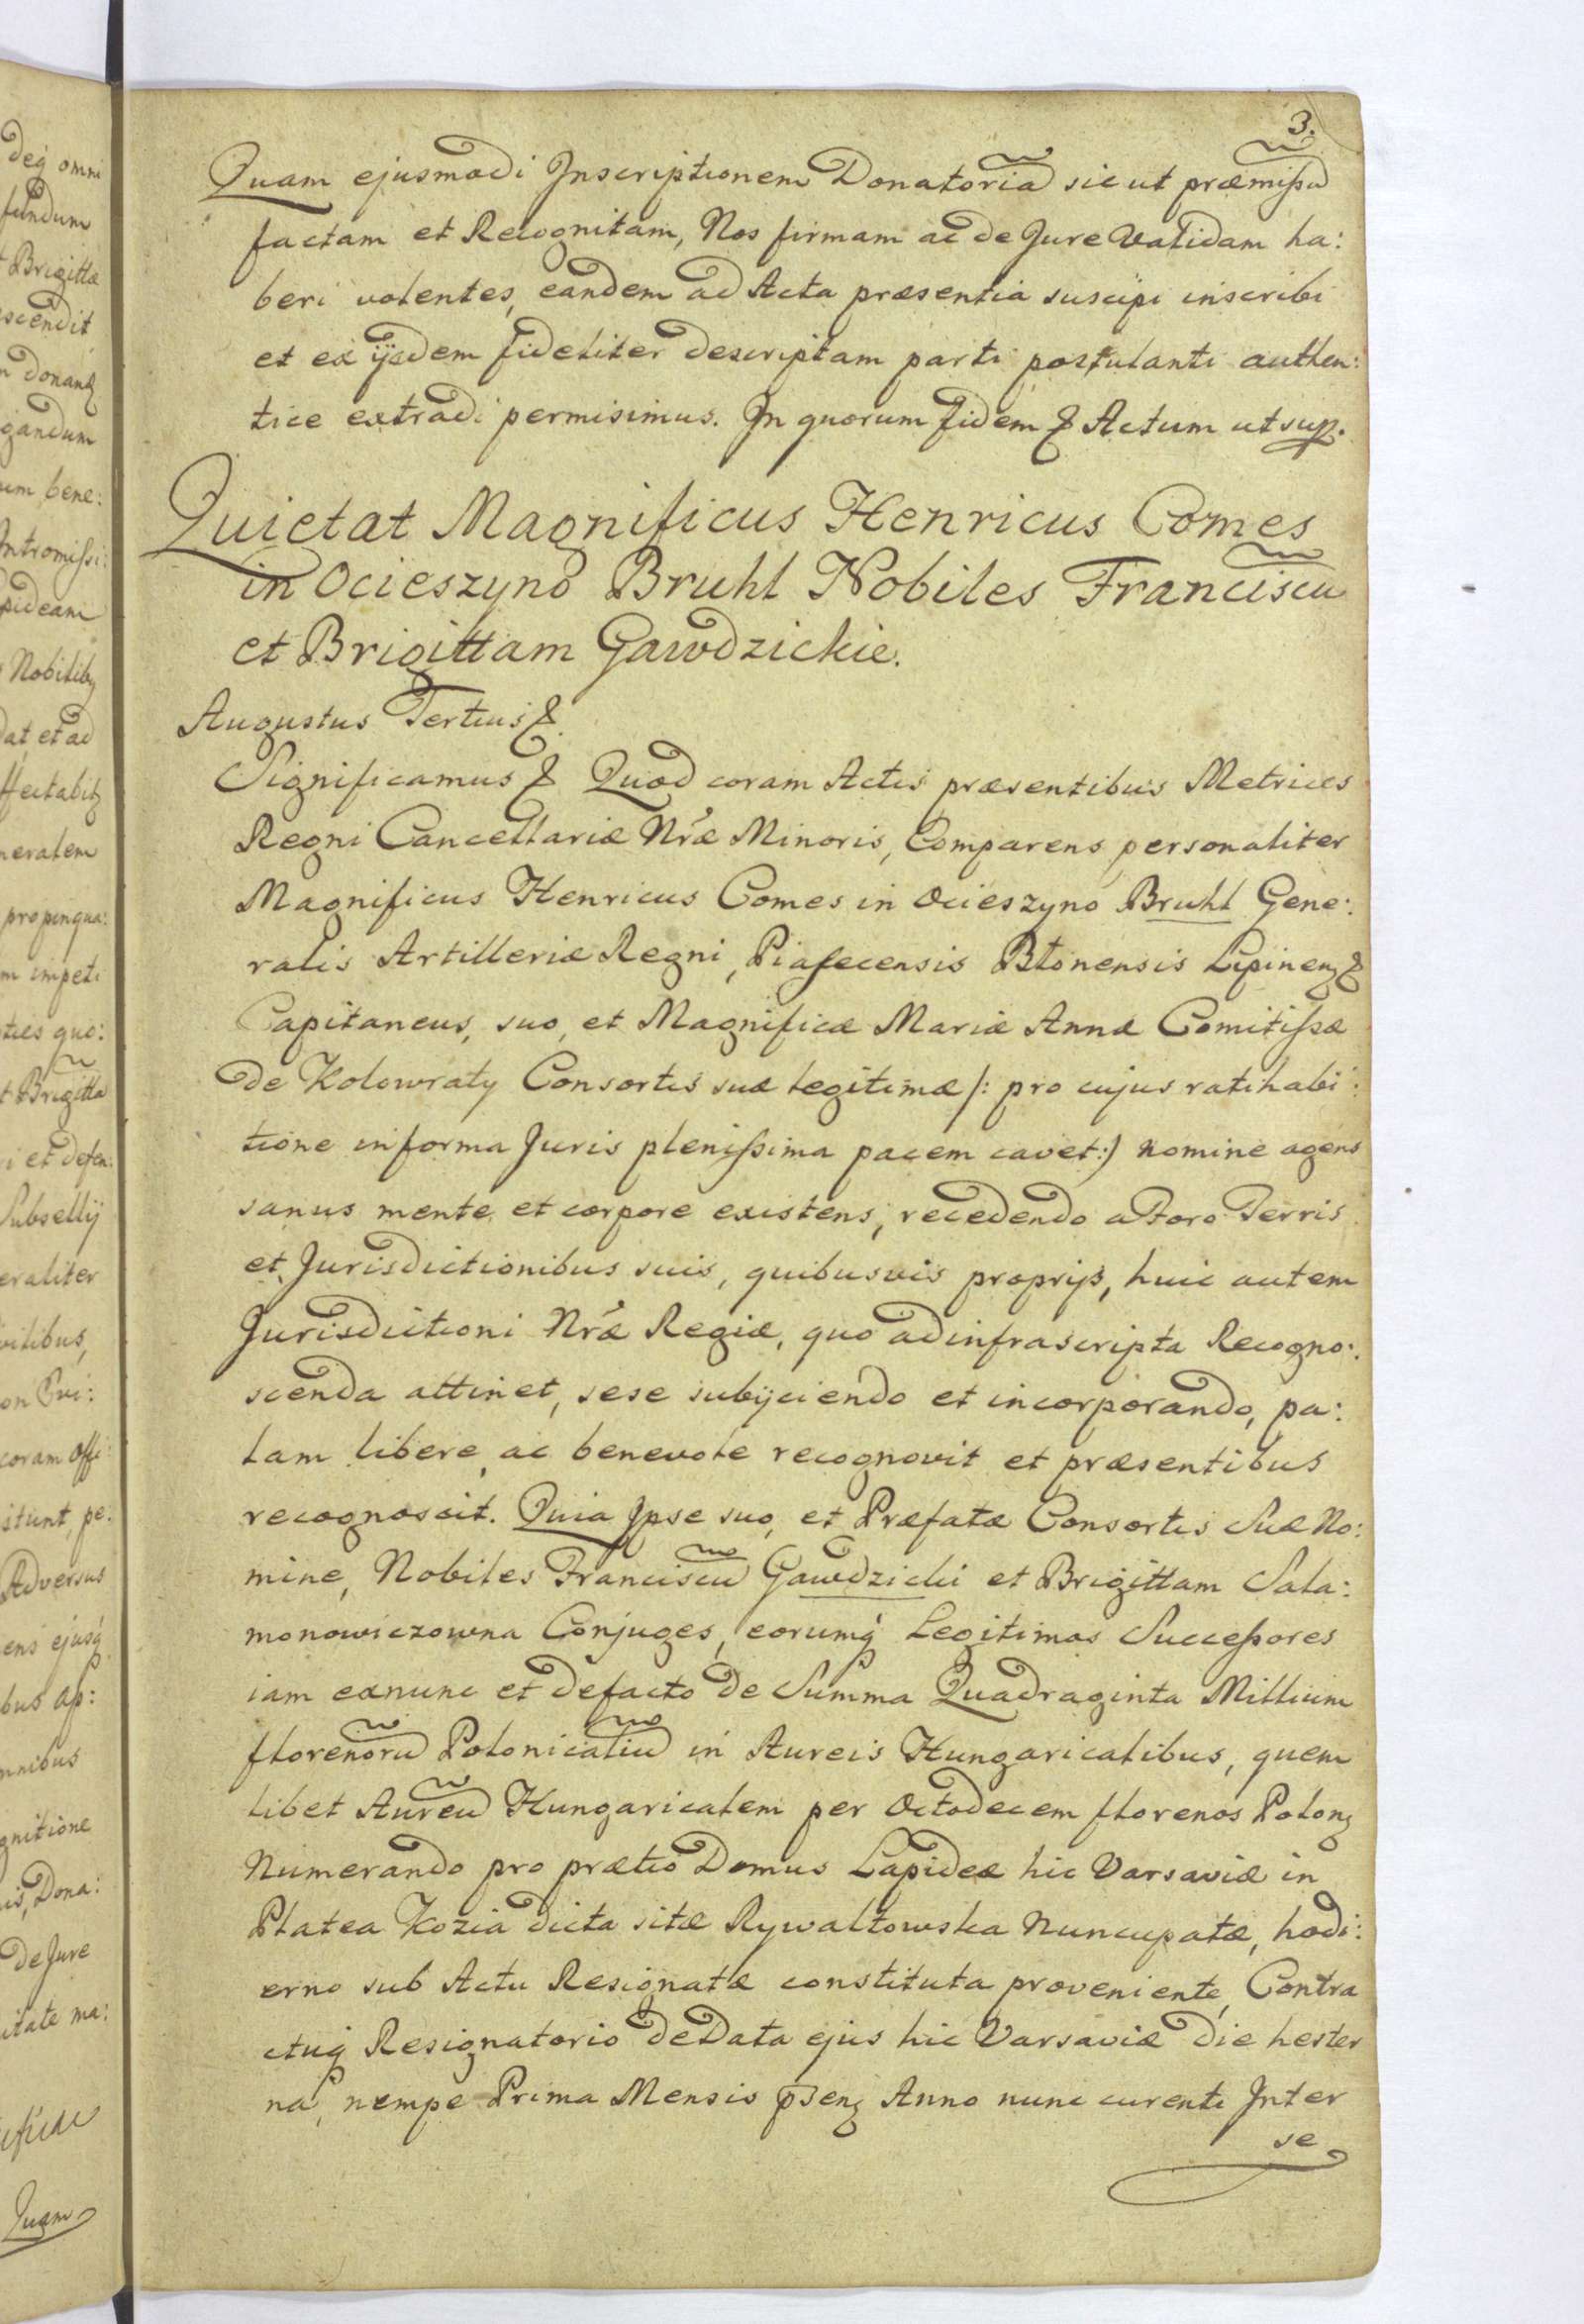 3.
Quam ejusmodi Inscriptionem Donatoriã sic ut præmissũ
factam et Recognitam, Nos firmam ac de Jure Validam ha:
beri volentes, eandem ad Acta præsentia suscipi inscribi
et ex ijsdem fideliter descriptam parti postulanti authen:
tice extradi permisimus. In quorum fidem & Actum ut sup.
Quietat Magnificus Henricus Comes
in Ocieszyno Bruhl Nobiles Franciscũ
et Brigittam Gawdzickie.
Augustus Tertius &.
Significamus & Quod coram Actis præsentibus Metrices
Regni Cancellariæ Nræ Minoris, Comparens personaliter
Magnificus Henricus Comes in Ocieszyno Bruhl Gene:
ralis Artilleriæ Regni, Piasecensis Błonensis Lipinenz &
Capitaneus, suo, et Magnificæ Mariæ Annæ Comitissæ
de Kolowraty Consortis suæ legitimæ /: pro cujus ratihabi:
tione in forma Juris plenissima pacem cavet :/ nomine agens
sanus mente et corpore existens, recedendo a Foro Terris
et Jurisdictionibus suis, quibusvis proprijs, huic autem
Jurisdictioni Nræ Regiæ, quo ad infrascripta Recogno:
scenda attinet, sese subijciendo et incorporando, pa:
lam libere, ac benevole recognovit et præsentibus
recognoscit. Quia Ipse suo, et Præfatæ Consortis Suæ No:
mine, Nobiles Franciscũ Gawdzicki et Brigittam Sala:
monowiczowna Conjuges, eorumq́ Legitimos Successores
iam exnunc et defacto de Summa Quadraginta Millium
florenorũ Polonicaliũ in Aureis Hungaricalibus, quem
libet Aureũ Hungaricalem per Octodecem florenos Polonz
Numerando pro prætio Domus Lapideæ hic Varsaviæ in
Platea Kozia dicta sitæ Rywałtowska Nuncupatæ, hodi:
erno sub Actu Resignatæ constituta proveniente, Contra
ctuq Resignatorio de Data ejus hic Varsaviæ die hester
na, nempe Prima Mensis p̄senz Anno nunc curenti Inter
se